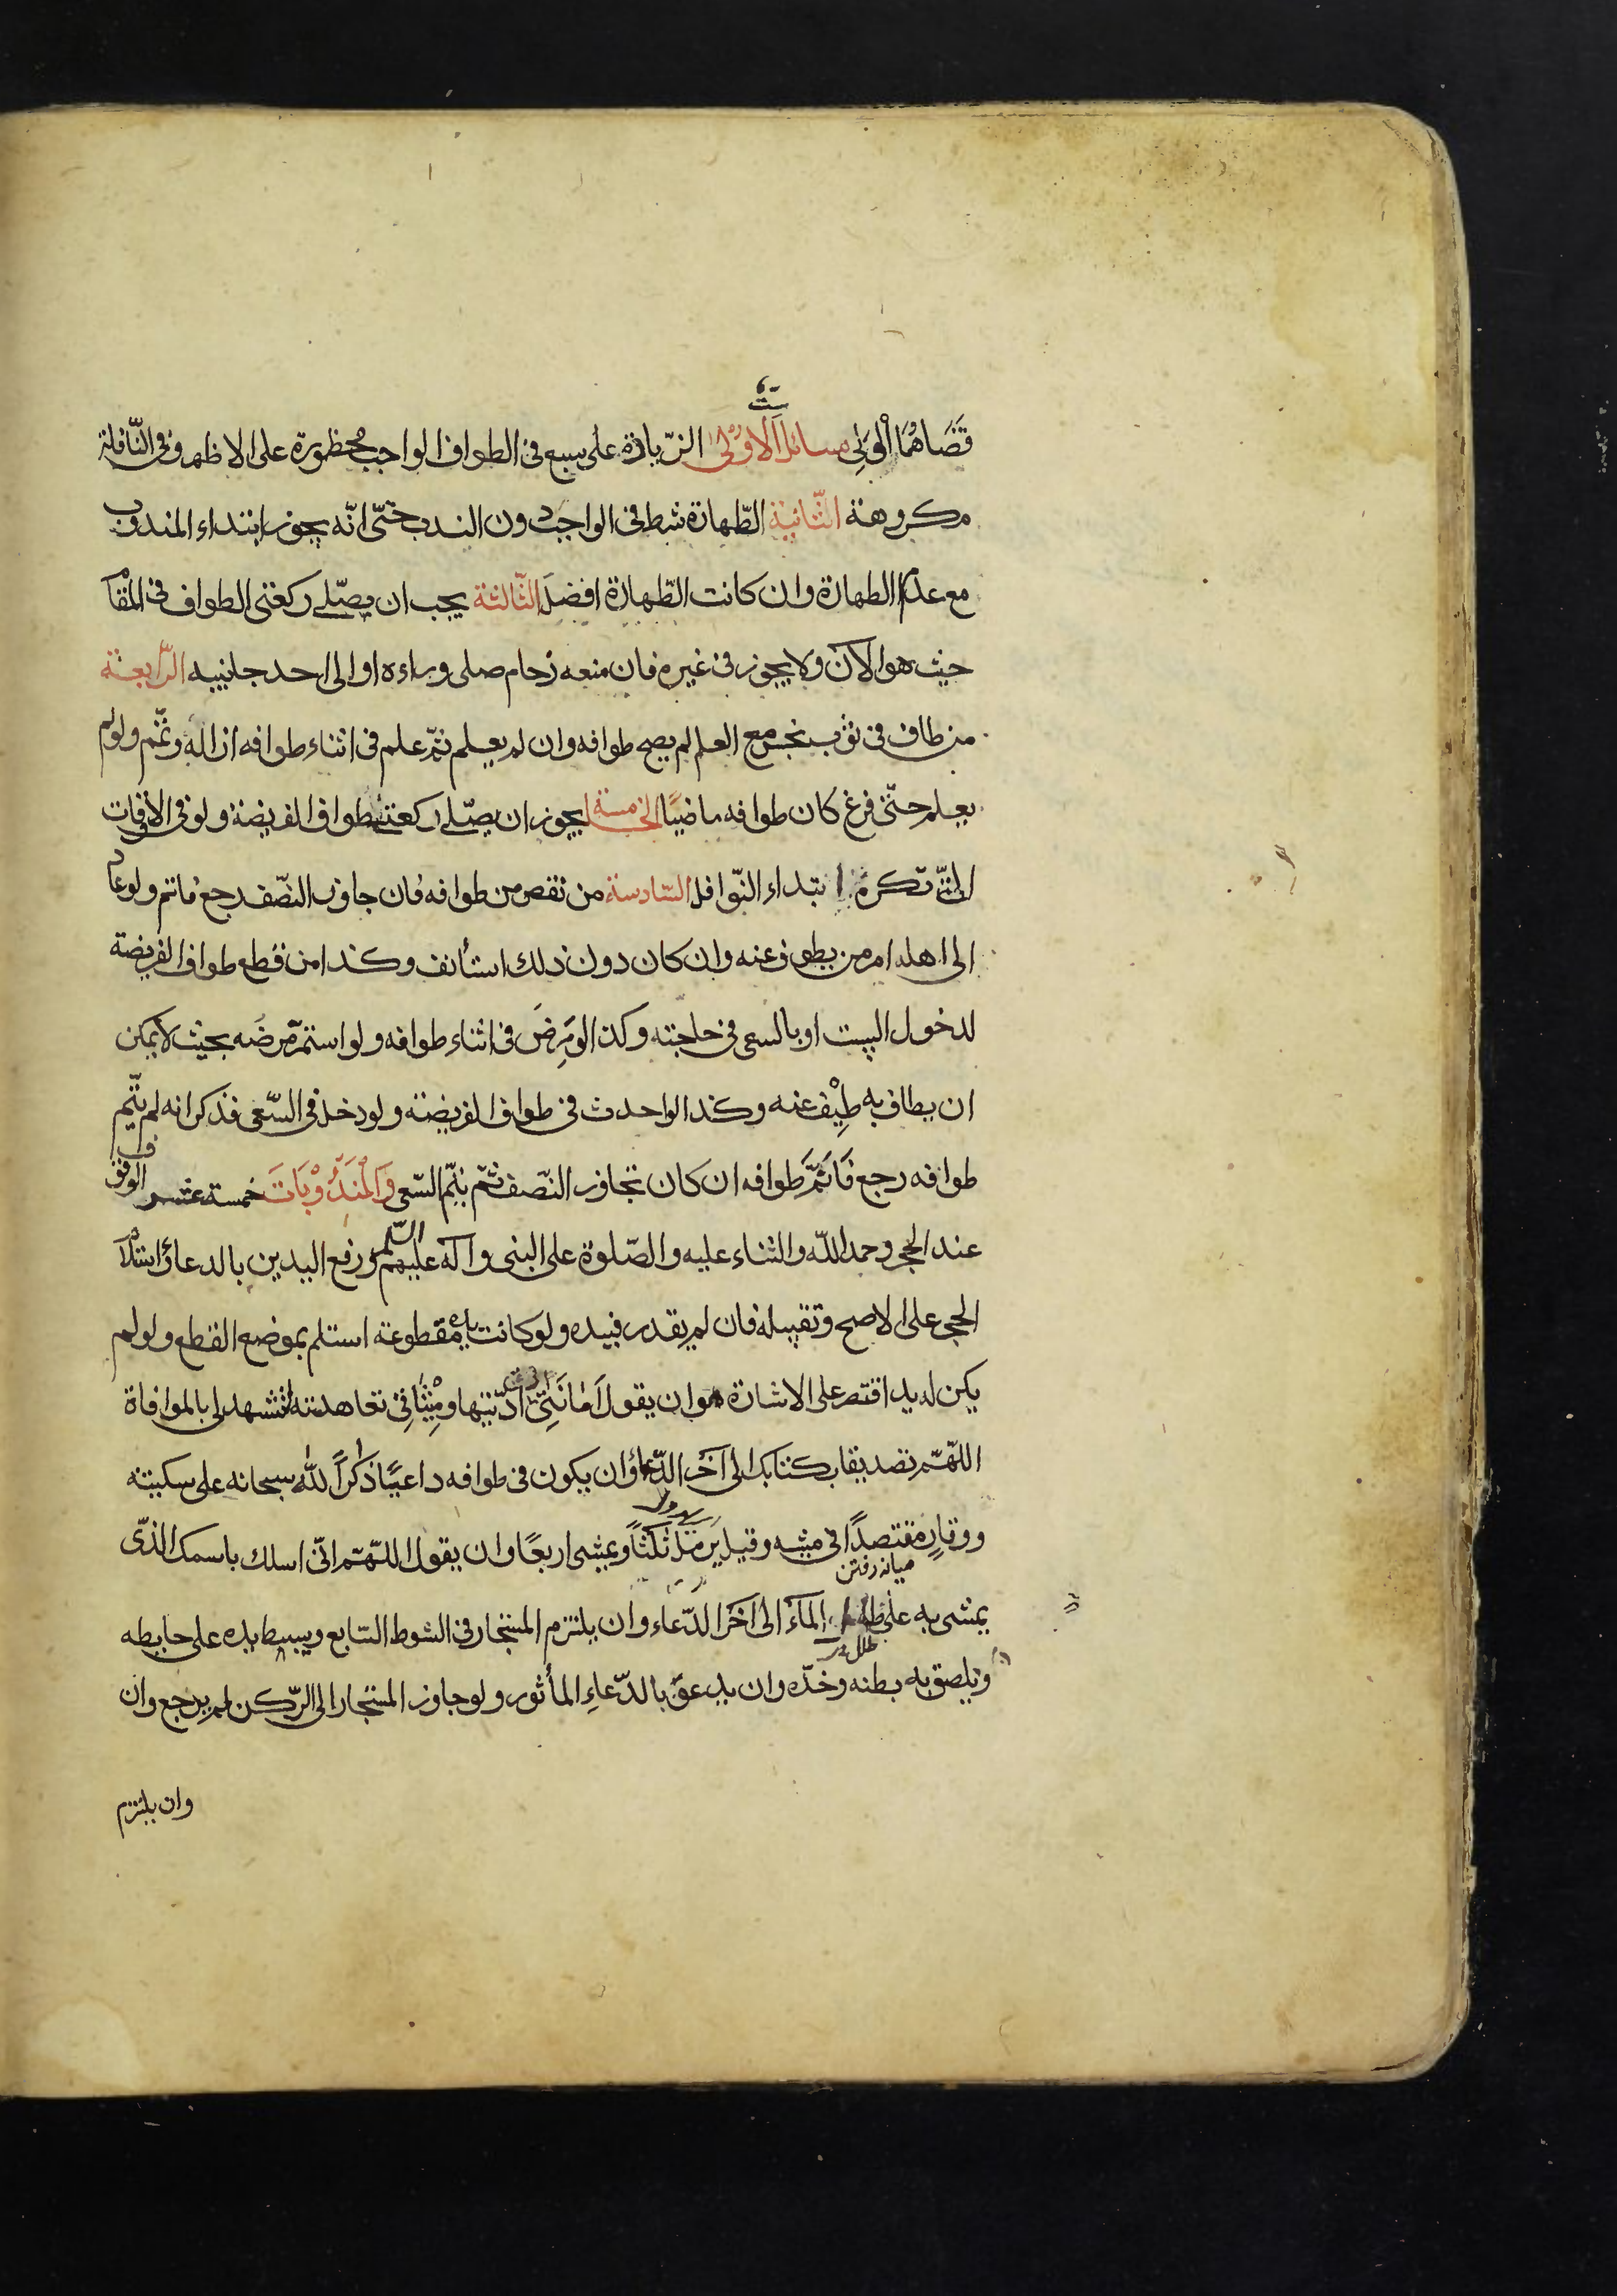 ست
قَضَاهُمَا الْوَلِى مسائل الاوُلىٰ الزّيادة على سبع فى الطواف الواجب محظورة على الاظهر وفى النّافلة
مكروهة الثّانية الطّهارة شرط فى الواجب دون الندب حتّى انّه يجوز ابتداء المندوب
مع عدم الطهارة وان كانت الطّهارة افضلَ الثّالثة يجب ان يصلّى ركعتى الطواف فى المقام
حيث هو الآن ولا يجوز فى غيره فان منعه زحام صلى وراءه او الى احد جانبيه الرّابعة
من طاف فى ثوب نجس مع العلم لم يصح طوافه وان لم يعلم ثمّ علم فى اثناء طوافه ازاله وتمّم ولو لم
يعلم حتّى فرغ كان طوافه ماضيًا الخامسة يجوز ان يصلّى ركعتى طواف الفريضة ولو فى الاوقات
التى تكره ابتداء النّوافل السّادسة من نقص من طوافه فان جاوز النصّف رجع فاتم ولو عاد
الى اهله امر من يطوف عنه وان كان دون ذلك استأنف وكذا من قطع طواف الفريضة
لدخول البيت او بالسعى فى حاجته وكذا لو مَرِضَ فى اثناء طوافه ولو استمرّ مرضه بحيث لا يمكن
ان يطاف به طِيْف عنه وكذا لو احدث فى طواف الفريضة ولو دخل فى السّعى فذكر انه لم يتّم
طوافه رجع فَاَتَمَّ طوافه ان كان تجاوز النّصف ثمّ يتمّ السّعى وَالْمَنَدُوْبَاتَ خمسة عشر الوقوف
عند الحجر وحمد اللّه والثناء عليه والصّلوة على النبى وآله عليهم السّلم ورفع اليدين بالدعاء واستلام
الحجر على الاصح وتقبيله فان لم يقدر فبيده ولو كانت يده مقطوعة استلم بموضع القطع ولو لم
يكن له يد اقتصر على الاشارة وان يقول اَمَانَتِىْ ادّيتها ومِيْثَاقِىْ تعاهدته لتشهد لى بالموافاة
اللّهمّ تصديقا بكتابك الى آخر الدّعاء وان يكون فى طوافه داعيًا ذاكرًا للّه سبحانه على سكينة
ووقارٍ مقتصدًا فى مشيه وقيل يَرمَل ثلثًا ويمشى اربعًا وان يقول اللّهمّ انّى اسلك باسمك الذّى
ميانه رفتن
يمشى به على الماء الى آخر الدّعاء وان يلتزم المستجار فى الشوط السّابع ويبسط يده على حايطه
ويلصق به بطنه وخدّه وان يدعو بالدّعاءِ المأثور ولو جاوز المستجار الى الرّكن لم يرجع وان
وان يلتزم